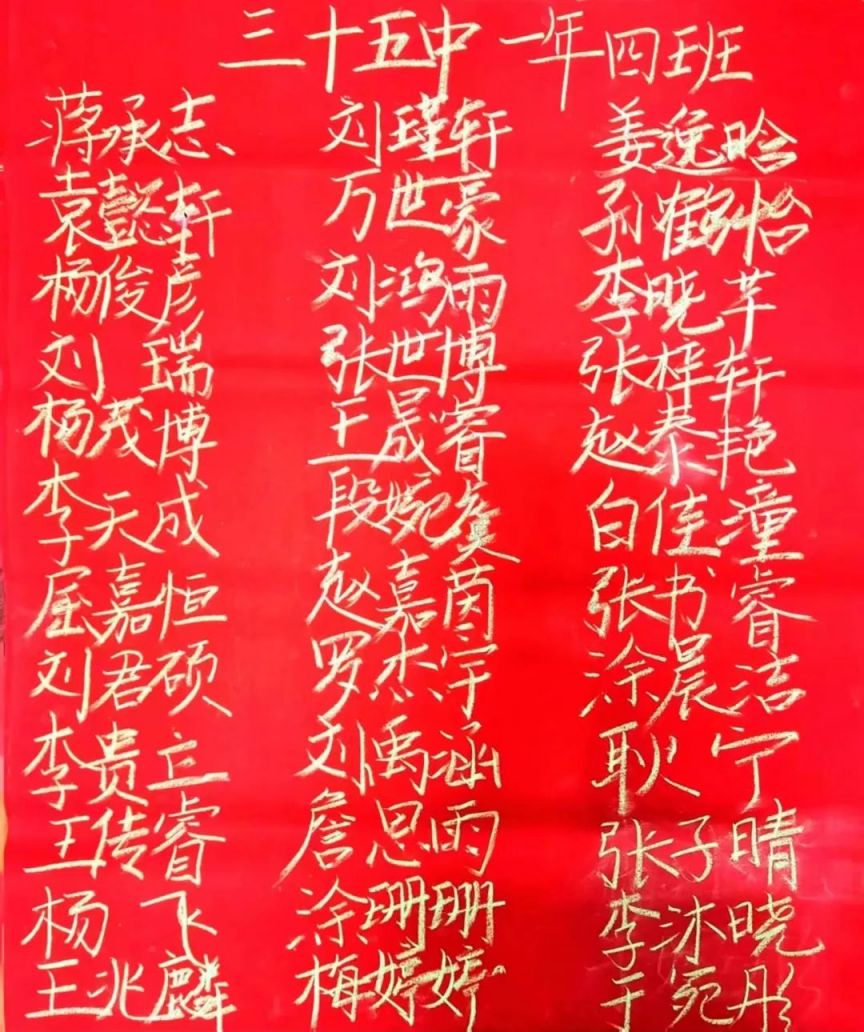 三十五中 一年四班
蒋承志 刘瑾轩 姜逸晗
袁懿轩 万世豪 孙鹤怡
杨俊彦 刘鸿雨 李晓芊
刘瑞 张世博 张梓轩
杨茂博 王晟睿 赵泰艳
李天成 段婉 白佳潼
屈嘉恒 赵嘉茵 张书睿
刘君硕 罗杰宇 涂晨洁
李贵立 刘禹涵 耿宁
王传睿 詹思雨 张子晴
杨飞 涂珊珊 李沐晓
王兆麟 梅婷婷 于宛彤